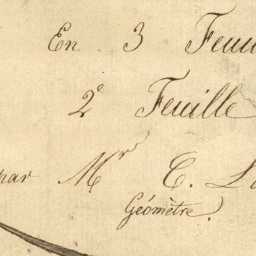 En 3 Feui
2e Feuille
par Mr C. L
Géomètre.